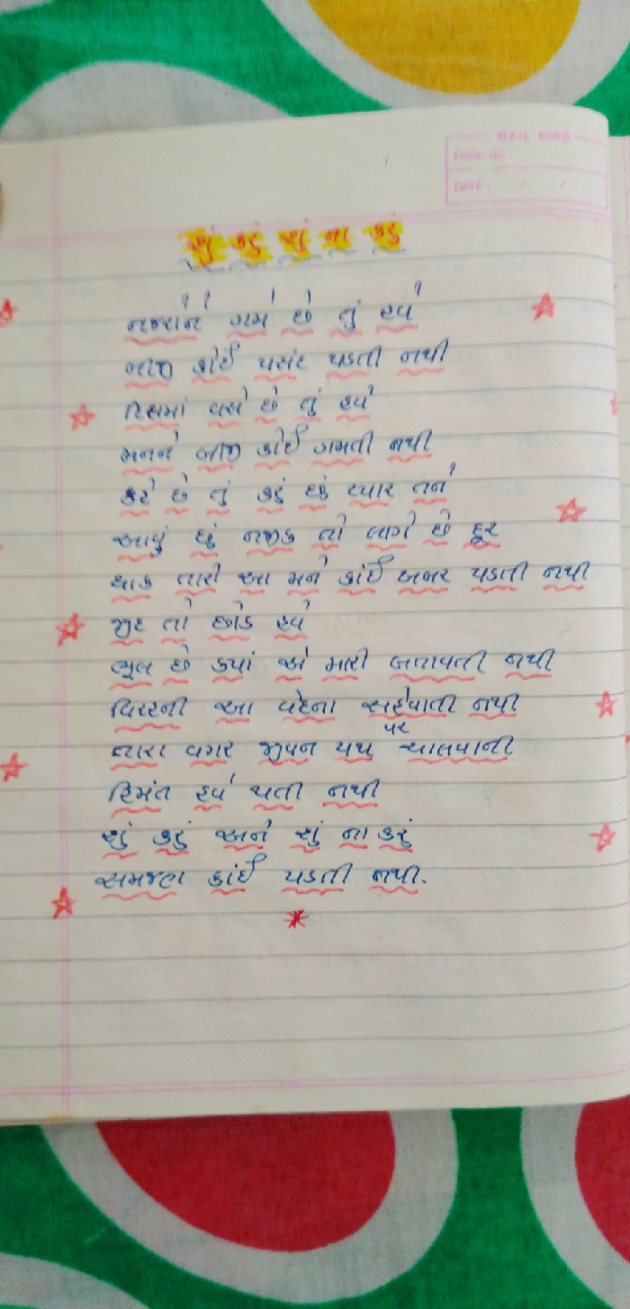 NAIL BIND
PAGE NO :
DATE : / /
શું કરું શું ના કરું
નજરોને ગમે છે તું હવે
બીજી કોઈ પસંદ પડતી નથી
દિલમાં વસે છે તું હવે
મનને બીજી કોઈ ગમતી નથી
કહે છે તું કરું છું પ્યાર તને
આવું છું નજીક તો લાગે છે દૂર
ચાક તારી આ મને કાંઈ ખબર પડાતી નથી
જીદ તો છોડ હવે
ભૂલ છે ક્યાં એ મારી બતાવતી નથી
વિરહની આ વેદના સહેવાતી નથી
તારા વગર જીવન પથ પર ચાલવાની
હિંમત હવે થતી નથી
શું કરું અને શું ના કરું
સમજણ કાંઈ પડતી નથી.